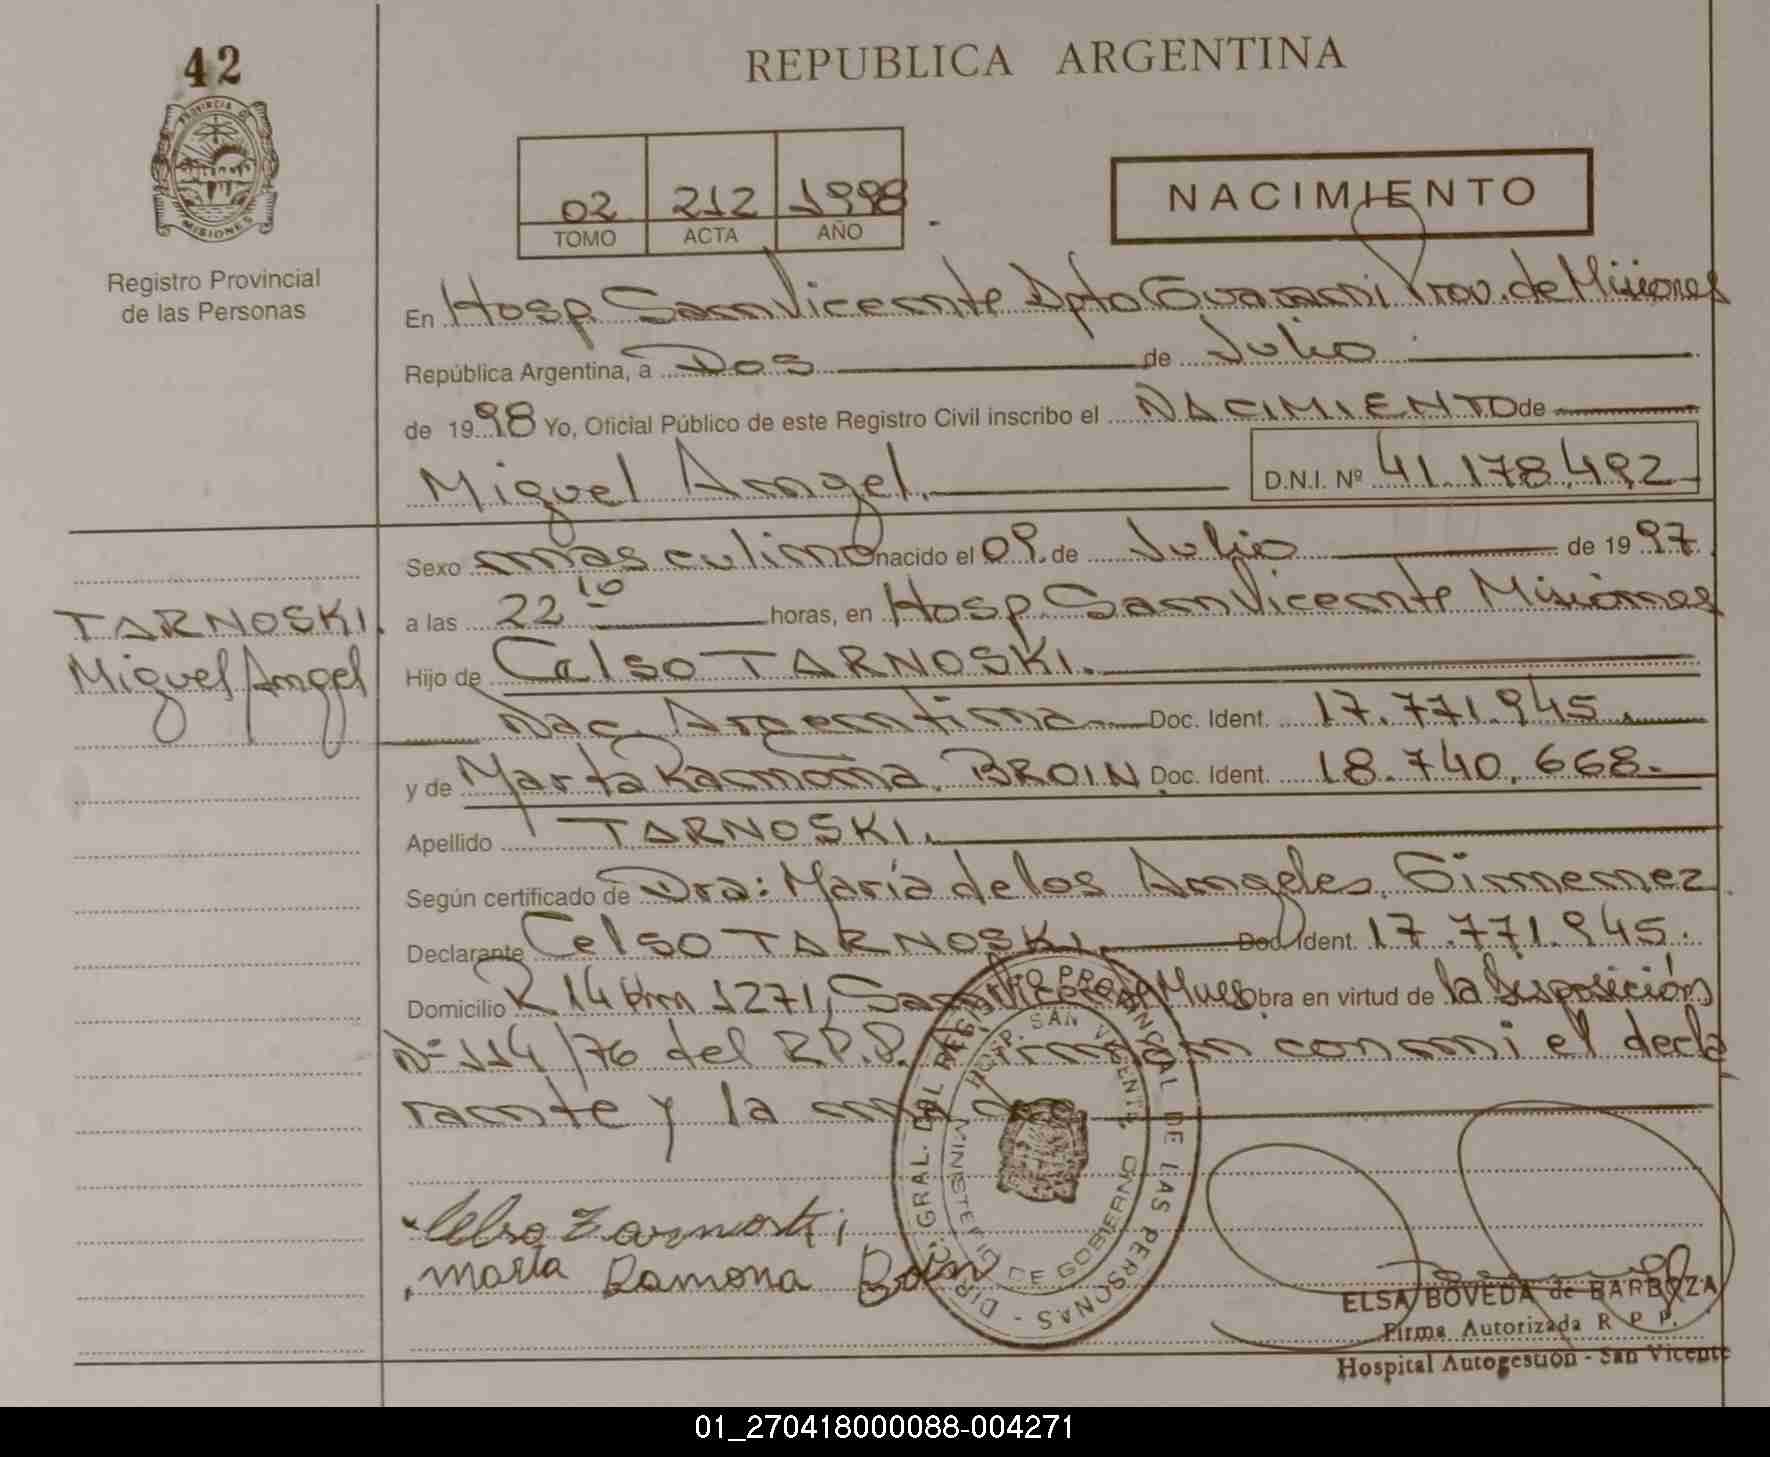 42
REPUBLICA ARGENTINA
PROVINCIA DE
MISIONES
Registro Provincial
de las Personas
02 212 1998
TOMO ACTA AÑO
NACIMIENTO
En Hosp. San Vicente Dpto Guarani Prov. de Misiones
República Argentina, a Dos de Julio
de 1998 Yo, Oficial Público de este Registro Civil inscribo el NACIMIENTO de
Miguel Angel. D.N.I. Nº 41.178.492
Sexo masculino nacido el 09 de Julio de 1997
a las 22 10 horas, en Hosp. San Vicente Misiones
TARNOSKI.
Miguel Angel
Hijo de Celso TARNOSKI.
Nac. Argentina Doc. Ident. 17.771.945.
y de Marta Ramona BROIN Doc. Ident. 18.740.668.
Apellido TARNOSKI.
Según certificado de Dra: María de los Angeles Gimenez
Declarante Celso TARNOSKI. Doc. Ident. 17.771.945.
Domicilio R 14 km 1271, San Vicente Mnes obra en virtud de la Disposición
Nº 114/76 del R.P.P. Firman con mi el decla
rante y la madre
DIR. GRAL. DEL REGISTRO PROVINCIAL DE LAS PERSONAS -
HOSP. SAN VICENTE
MINISTERIO DE GOBIERNO
Celso Tarnoski
Marta Ramona Boin
ELSA BOVEDA de BARBOZA
Firma Autorizada R P P.
Hospital Autogestion - San Vicente
01_270418000088-004271